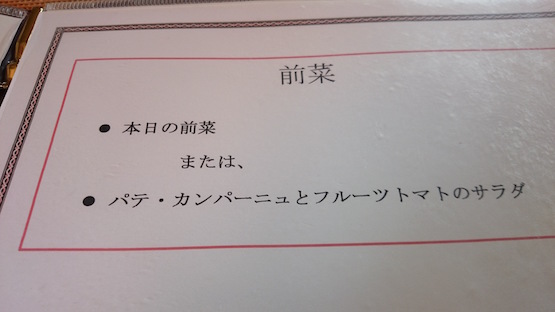 前菜
● 本日の前菜
または、
● パテ・カンパーニュとフルーツトマトのサラダ